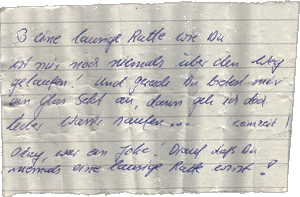 So eine lausige Ratte wie Du
ist mir noch niemals über den Weg
gelaufen! Und gerade Du bietest mir
ein Glas Sekt an, dann geh ich doch
lieber Wasser saufen...
Okay, war ein Joke! Drauf, daß Du
niemals eine lausige Ratte wirst!